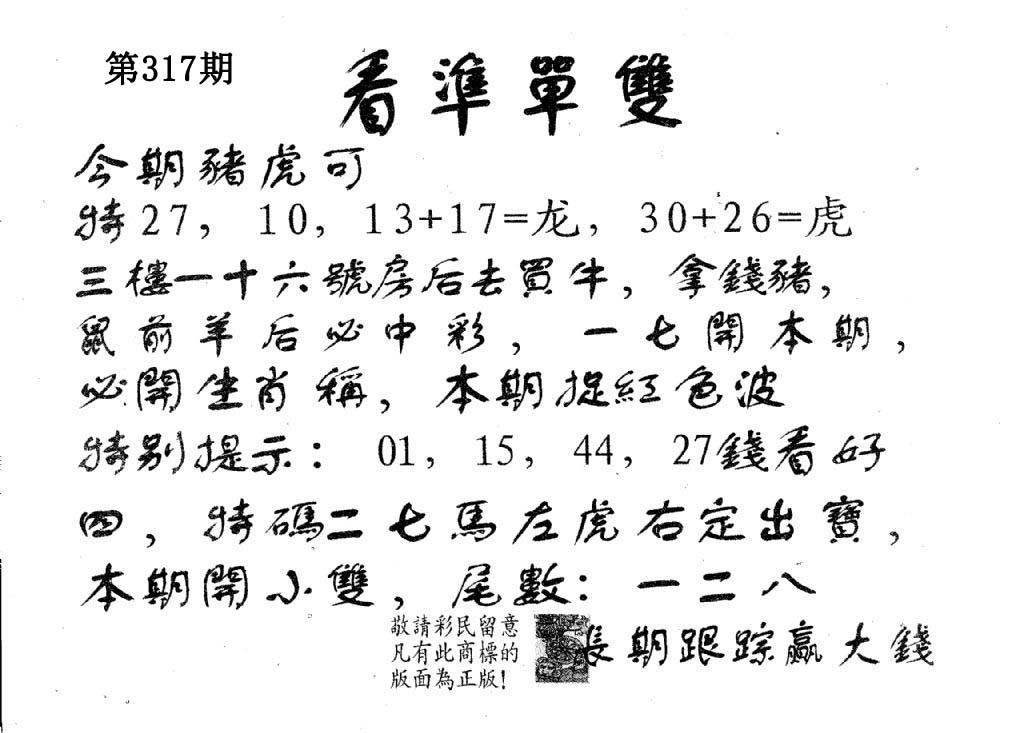 第317期
看準單雙
今期豬虎可
特27，10，13+17=龙，30+26=虎
三樓一十六號房后去買牛，拿錢豬，
鼠前羊后必中彩，一七開本期，
必開生肖稱，本期捉紅色波
特别提示：01，15，44，27錢看好
四，特碼二七馬左虎右定出寶，
本期開小雙，尾數：一二八
敬請彩民留意
凡有此商標的
版面為正版！
長期跟踪赢大錢